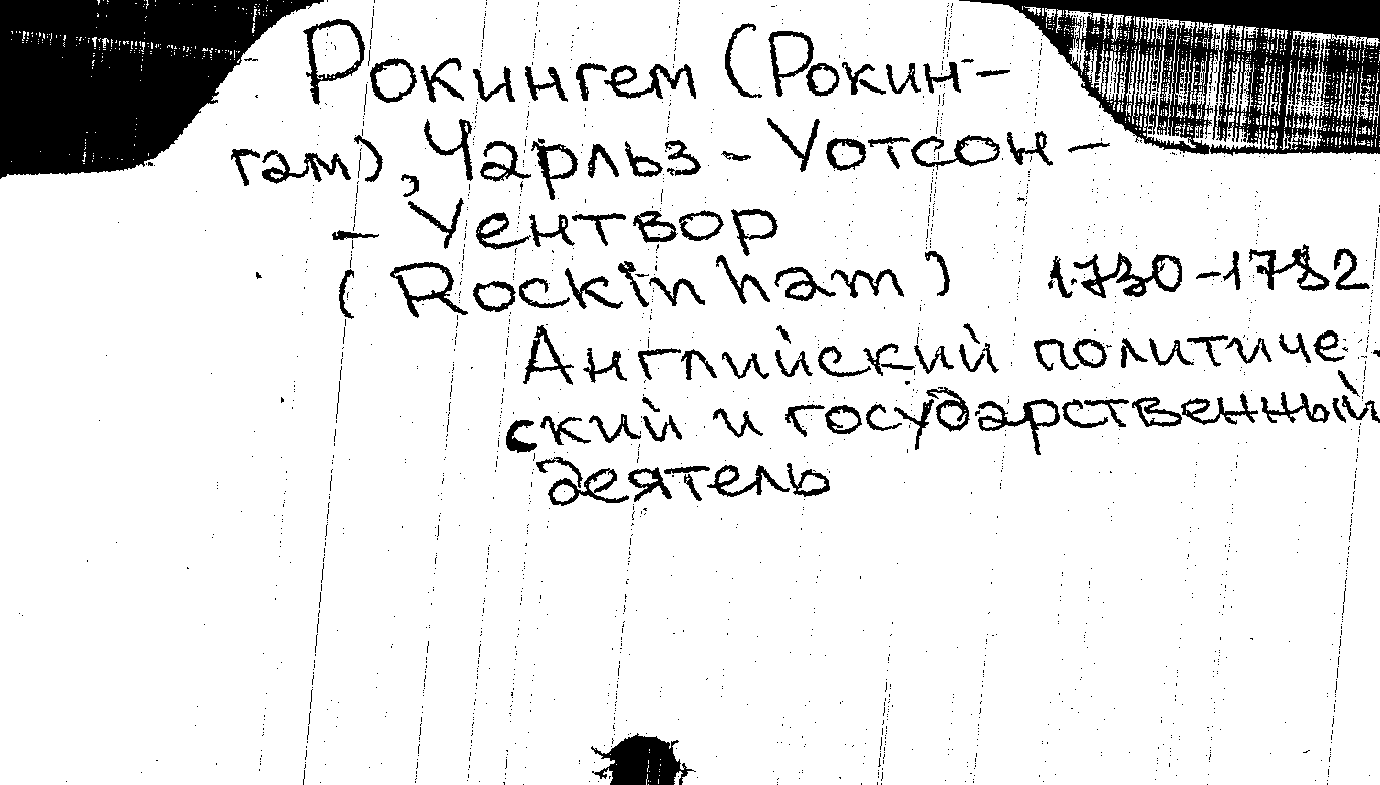 Рокингем (Рокин-
гам), Чарльз - Уотсон -
- Уентвор
(Rockinham) 1730-1782
Английский политиче-
ский и государственный
деятель